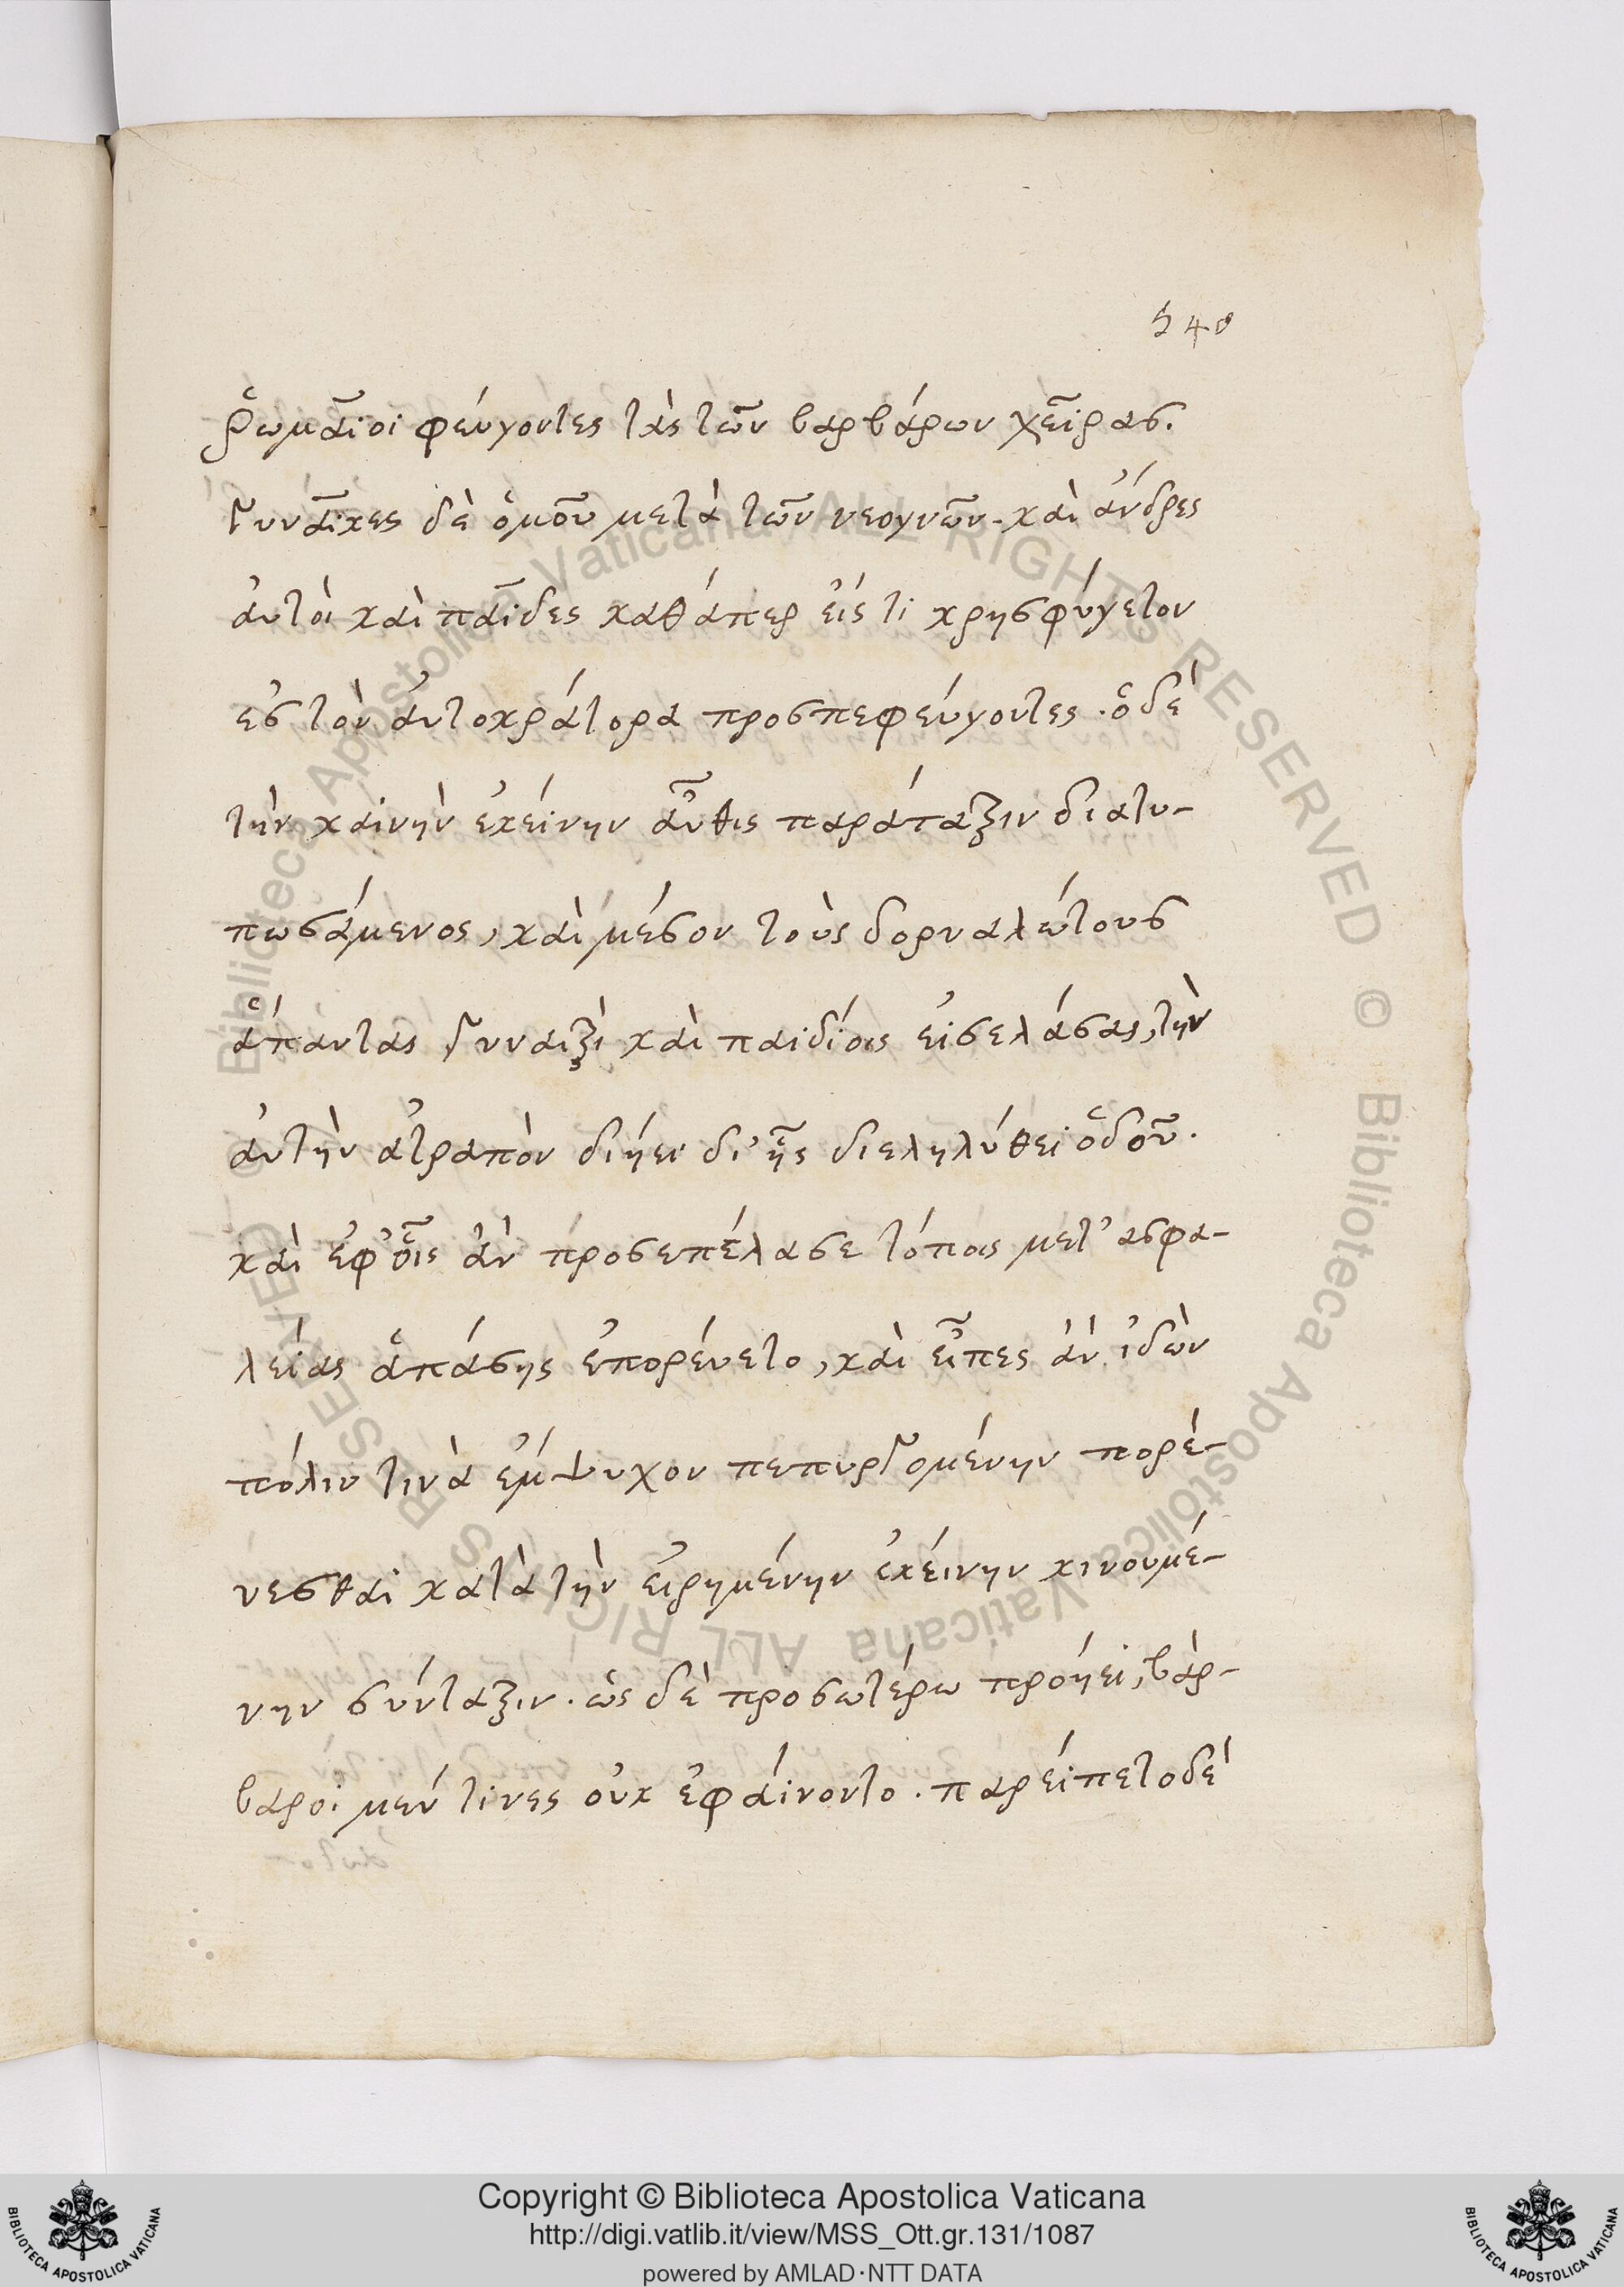 540
ῥωμαῖοι φεύγοντες τὰς τῶν βαρβάρων χεῖρας.
γυναῖκες δὲ ὁμοῦ μετὰ τῶν νεογνῶν. καὶ ἄνδρες
ἀυτοὶ καὶ παῖδες καθάπερ εἰς τι κρησφύγετον
ἐς τὸν ἀυτοκράτορα προσπεφεύγοντες. ὁ δὲ
τὴν καινὴν ἐκείνην αὖθις παράταξιν διατυ-
πωσάμενος, καὶ μέσον τοὺς δορυαλώτους
ἅπαντας γυναιξὶ καὶ παιδίοις εἰσελάσας, τὴν
ἀυτὴν ἀτραπὸν διήει δι' ἧς διεληλύθει ὁδοῦ.
καὶ ἐφ' οἷς ἂν προσεπέλασε τόποις μετ' ασφα-
λείας ἁπάσης ἐπορέυετο, καὶ εἶπες ἀν ἰδὼν
πόλιν τινὰ ἔμψυχον πεπυργομένην πορέ-
υεσθαι κατὰ τὴν εἰρημένην ἐκείνην κινουμέ-
νην σύνταξιν. ὡς δὲ προσωτέρω προήει, βάρ-
βαροι μέν τινες οὐκ ἐφαίνοντο. παρείπετο δέ
Copyright © Biblioteca Apostolica Vaticana
http://digi.vatlib.it/view/MSS_Ott.gr.131/1087
powered by AMLAD·NTT DATA
BIBLIOTECA APOSTOLICA VATICANA
BIBLIOTECA APOSTOLICA VATICANA
© Biblioteca Apostolica Vaticana ALL RIGHTS RESERVED © Biblioteca Apostolica Vaticana ALL RIGHTS RESERVED